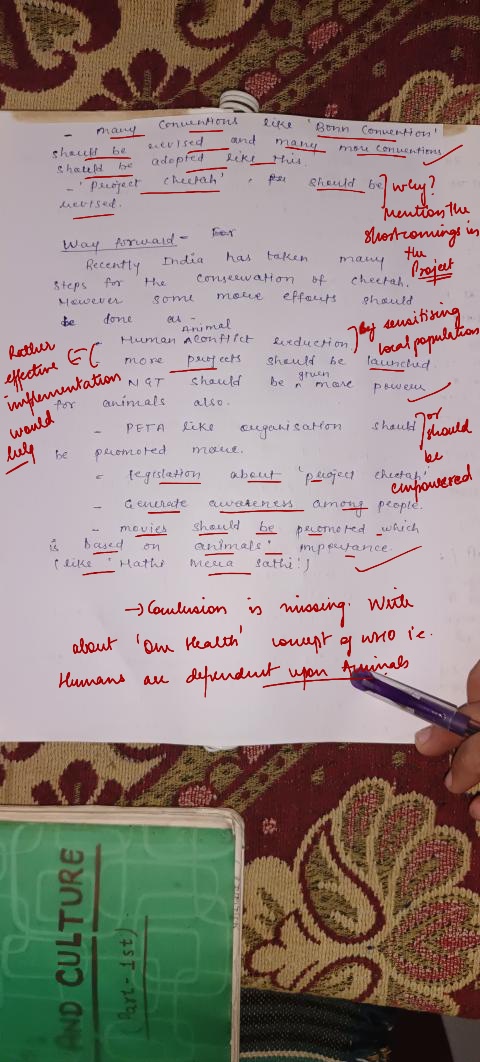 - many conventions like 'Bonn Convention'
should be revised and many more conventions
should be adopted like this.
- 'Project cheetah' should be
revised.
why?
mention the
shortcomings in
the
Project
Way forward -
Recently India has taken many
steps for the conservation of cheetah.
However some more efforts should
be done as -
- Human Animal conflict reduction
by sensitising
local population
- more projects should be launched
Rather
effective
implementation
would
help
- NGT should be given more power
for animals also.
- PETA like organisation should
be promoted more.
or
should
be
empowered
- legislation about 'project cheetah'
- Generate awareness among people.
- movies should be promoted which
is based on animals' importance.
(like 'Hathi Mera Sathi')
→ Conclusion is missing. Write
about 'One Health' concept of WHO i.e.
Humans are dependent upon Animals
AND CULTURE
(Part-1st)